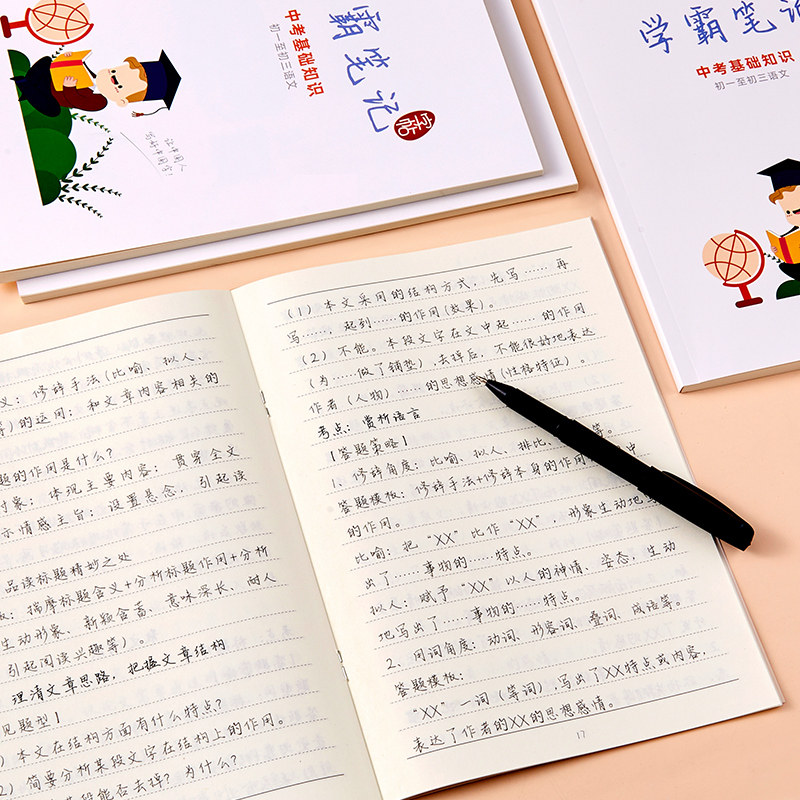 霸笔记
字帖
中考基础知识
初一至初三语文
让中国人
写好中国字!
学霸笔记
中考基础知识
初一至初三语文
义: 修辞手法(比喻、拟人、
)的运用; 和文章内容相关的
题的作用是什么?
对象; 体现主要内容; 贯穿全文
示情感主旨; 设置悬念, 引起读
品读标题精妙之处
板: 揣摩标题含义+分析标题作用+分析
生动形象、新颖含蓄、意味深长、耐人
引起阅读兴趣等)
理清文章思路, 把握文章结构
见题型1
) 本文在结构方面有什么特点?
2) 简要分析某段文字在结构上的作用。
段能否去掉? 为什么?
(1) 本文采用的结构方式, 先写…… 再
写…… 起到……的作用(效果)。
(2) 不能。本段文字在文中起……的作用
(为……做了铺垫), 去掉后, 不能很好地表达
作者(人物)……的思想感情(性格特征)。
考点: 赏析语言
[答题策略]
1. 修辞角度: 比喻、拟人、排比、等。
答题模板: 修辞手法+修辞本身的作用中
的作用。
比喻: 把“XX”比作“XX”, 形象生动地写
出了……事物的……特点。
拟人: 赋予“XX”以人的神情、姿态, 生动
地写出了……事物的……特点。
2. 用词角度: 动词、形容词、叠词、成语等。
答题模板:
“XX”一词(等词), 写出了XX特点或内容,
表达了作者的XX的思想感情。
17